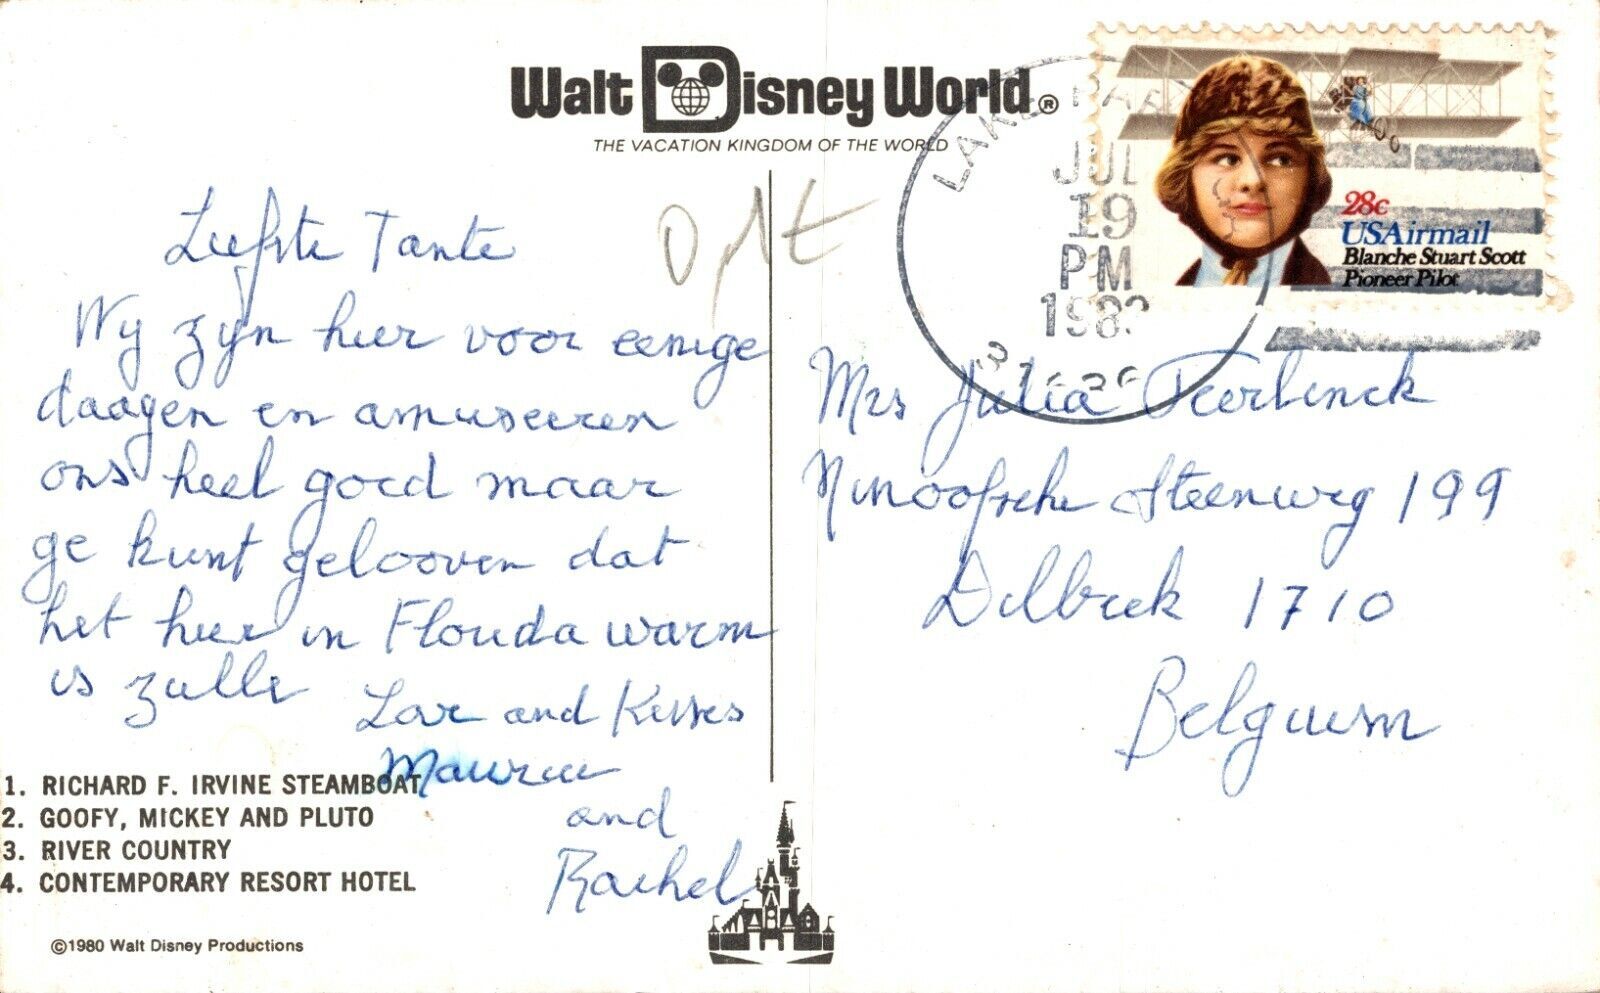 Walt Disney World®
THE VACATION KINGDOM OF THE WORLD
Liefste Tante
Wy zyn hier voor eenige
daagen en amuseeren
ons heel goed maar
ge kunt gelooven dat
het hier in Florida warm
is zulle
Love and Kisses
Maurice
and
Rachel
1. RICHARD F. IRVINE STEAMBOAT
2. GOOFY, MICKEY AND PLUTO
3. RIVER COUNTRY
4. CONTEMPORARY RESORT HOTEL
©1980 Walt Disney Productions
LAKE
JUL
19
PM
198
28c
USAirmail
Blanche Stuart Scott
Pioneer Pilot
Mrs Julia Teerlinck
Ninoofsche Steenweg 199
Dilbeek 1710
Belguim